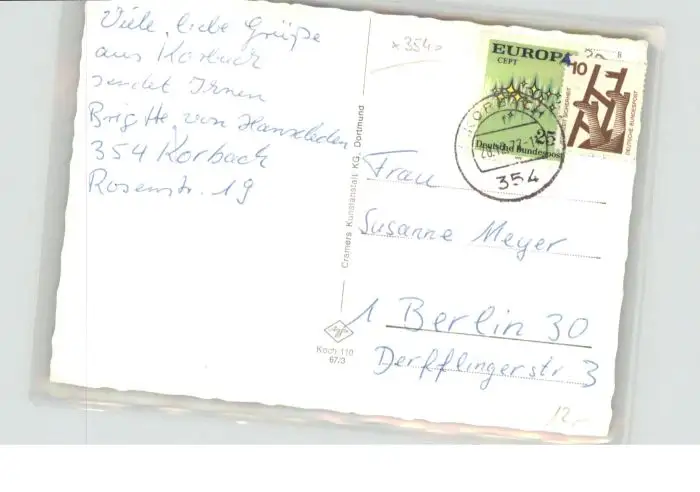 Viele liebe Grüße
aus Korbach
sendet Ihnen
Brigitte von Hansleden
354 Korbach
Rosenstr. 19
x 354
Cramers Kunstanstalt KG, Dortmund
Agfa
Koch 110
67/3
EUROPA
CEPT
25
Deutsche Bundespost
10
DEUTSCHE BUNDESPOST
KORBACH
354
8
Frau
Susanne Meyer
1 Berlin 30
Derfflingerstr 3
12,-